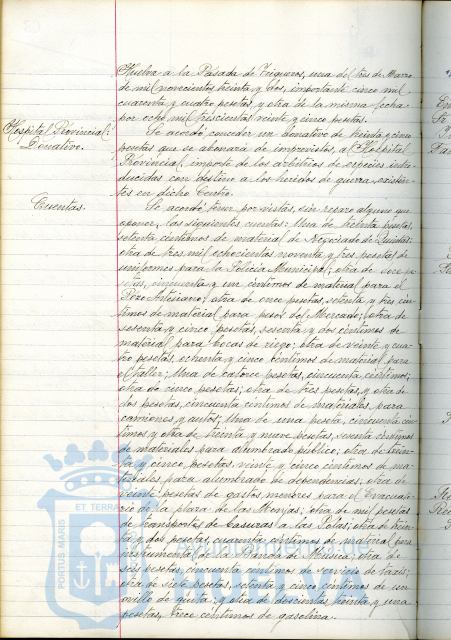 Huelva a la Pasada de Trigueros, una del tres de Marzo
de mil novecientos treinta y dos, importante cinco mil
cuarenta y cuatro pesetas y otra de la misma fecha
por ocho mil trescientas veinte y cinco pesetas.
Hospital Provincial:
Donativo.
Se acordó, conceder un donativo de treinta y cinco
pesetas que se abonará de imprevistos, al Hospital
Provincial, importe de los arbitrios de especies intro
ducidas con destino a los heridos de guerra, existen
tes en dicho Centro.
Cuentas.
Se acordó tener por vistas, sin reparo alguno que
oponer, las siguientes cuentas: Una de treinta pesetas,
setenta centimos de material de Negociado de Quintas;
otra de tres mil ochocientas noventa y tres pesetas de
uniformes para la Policia Municipal; otra de doce pe
setas, cincuenta y un centimos de material para el
Pozo Artesiano; otra de once pesetas, setenta y tres cen
timos de material para pesos del Mercado; otra de
sesenta y cinco pesetas, sesenta y dos centimos de
material para bocas de riego; otra de veinte y cua
tro pesetas, ochenta y cinco centimos de material para
el taller; Una de catorce pesetas, cincuenta centimos;
otra de cinco pesetas; otra de tres pesetas, y otra de
dos pesetas, cincuenta centimos de materiales, para
camiones y autos; Una de una peseta, cincuenta cen
timos y otra de treinta y nueve pesetas, sesenta centimos
de materiales para alumbrado publico; otra de trein
ta y cinco, pesetas, veinte y cinco centimos de ma
teriales para alumbrado de dependencias; otra de
veinte pesetas de gastos menores para el Evacuato
rio de la plaza de las Monjas; otra de mil pesetas
de transportes de basuras a las Pilas; otra de trein
ta y dos pesetas, cuarenta centimos de material para
instrumental de la Banda de Musica; otra de
seis pesetas, cincuenta centimos de servicio de taxis;
otra de siete pesetas, setenta y cinco centimos de un
ovillo de guita; y otra de doscientas treinta y una
pesetas, trece centimos de gasolina.
PORTUS MARIS
ET TERRAE
Ayuntamiento de
HUELVA